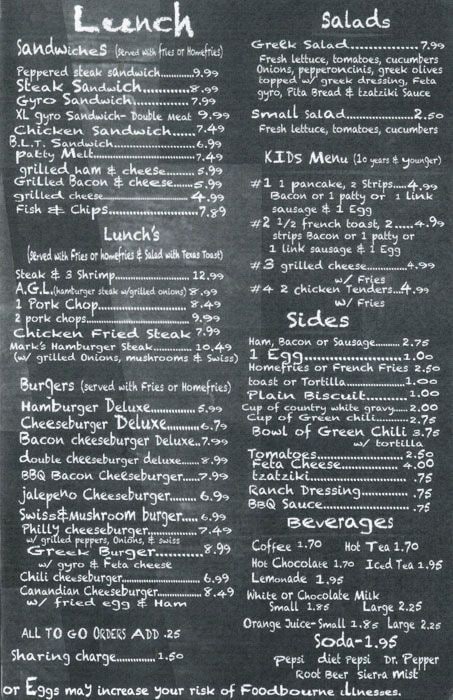 Lunch
Sandwiches (served with fries or Homefries)
Peppered steak sandwich............9.99
Steak Sandwich................8.99
Gyro Sandwich................7.99
XL gyro Sandwich- Double Meat 9.99
Chicken Sandwich............7.49
B.L.T. Sandwich.................6.99
Patty Melt.......................7.49
grilled ham & cheese........5.99
Grilled Bacon & cheese......5.99
grilled cheese...................4.99
Fish & Chips.....................7.89
Lunch's
(served with Fries or homefries & Salad with Texas Toast)
Steak & 3 Shrimp.................12.99
A.G.L.(hamburger steak w/grilled onions) 8.99
1 Pork Chop.......................8.49
2 pork chops......................9.99
Chicken Fried Steak 7.99
Mark's Hamburger Steak.........10.49
(w/ grilled Onions, mushrooms & Swiss)
Burgers (served with Fries or Homefries)
Hamburger Deluxe..............5.99
Cheeseburger Deluxe..........6.79
Bacon cheeseburger Deluxe..7.99
double cheeseburger deluxe.......8.99
BBQ Bacon Cheeseburger......7.99
jalepeno Cheeseburger........6.99
Swiss&Mushroom burger.....6.99
Philly cheeseburger............7.49
w/ grilled peppers, Onions, & swiss
Greek Burger................8.99
w/ gyro & Feta cheese
Chili cheeseburger................6.99
Canandian Cheeseburger..........8.49
w/ fried egg & Ham
ALL TO GO ORDERS ADD .25
Sharing charge...........1.50
Salads
Greek Salad................7.99
Fresh lettuce, tomatoes, cucumbers
Onions, pepperoncinis, greek olives
topped w/ greek dressing, Feta
gyro, Pita Bread & tzatziki Sauce
Small Salad.................2.50
Fresh lettuce, tomatoes, cucumbers
KIDS Menu (10 years & younger)
#1 1 pancake, 2 Strips.....4.99
Bacon or 1 patty or 1 link
sausage & 1 Egg
#2 1/2 french toast, 2.....4.99
strips Bacon or 1 patty or
1 link sausage & 1 Egg
#3 grilled cheese............4.99
w/ Fries
#4 2 chicken Tenders...4.99
w/ Fries
Sides
Ham, Bacon or Sausage.........2.75
1 Egg..........................1.00
Homefries or French Fries 2.50
toast or Tortilla...............1.00
Plain Biscuit..............1.00
Cup of country white gravy.....2.00
Cup of Green chili............2.75
Bowl of Green Chili 3.75
w/ tortilla
Tomatoes......................2.50
Feta Cheese................. 4.00
tzatziki........................ .75
Ranch Dressing............... .75
BBQ Sauce..................... .75
Beverages
Coffee 1.70 Hot Tea 1.70
Hot Chocolate 1.70 Iced Tea 1.95
Lemonade 1.95
White or Chocolate Milk
Small 1.85 Large 2.25
Orange Juice-Small 1.85 Large 2.25
Soda-1.95
Pepsi diet Pepsi Dr. Pepper
Root Beer Sierra Mist
or Eggs may increase your risk of Foodbourne Illnesses.